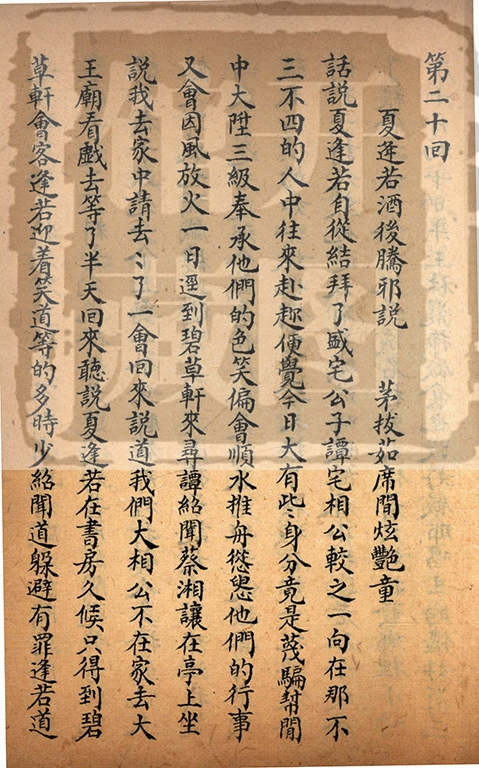 第二十回
夏逢若酒後騰邪說　茅拔茹席間炫艷童
話說夏逢若自從結拜了盛宅公子譚宅相公較之一向在那不
三不四的人中往來赴趁便覺今日大有些々身分竟是蔑騙幫閒
中大陞三級奉承他們的色笑偏會順水推舟慫恿他們的行事
又會因風放火一日逕到碧草軒來尋譚紹聞蔡湘讓在亭上坐
說我去家中請去々了一會回來說道我們大相公不在家去大
王廟看戲去等了半天回來聽說夏逢若在書房久候只得到碧
草軒會客逢若迎着笑道等的多時少紹聞道躲避有罪逢若道